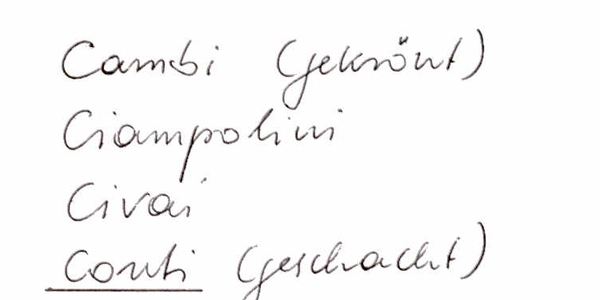 Cambi (gekrönt)
Ciampolini
Civai
Conti (geschacht)